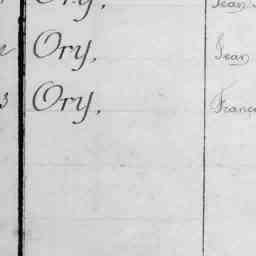 Ory, Jean
Ory, Jean
3 Ory, Franç